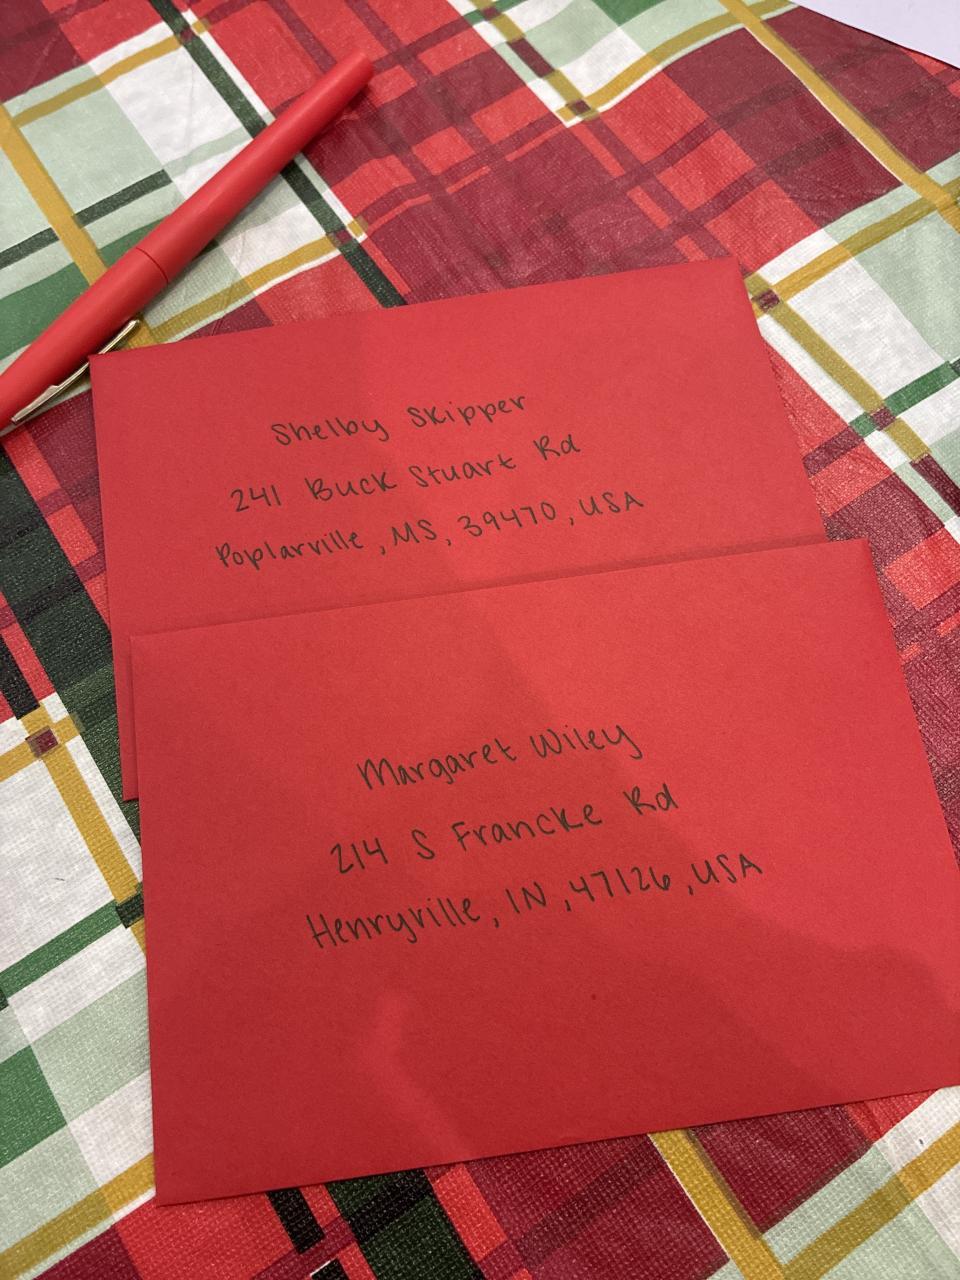 Shelby Skipper
241 Buck Stuart Rd
Poplarville, MS, 39470, USA
Margaret Wiley
214 S Francke Rd
Henryville, IN, 47126, USA